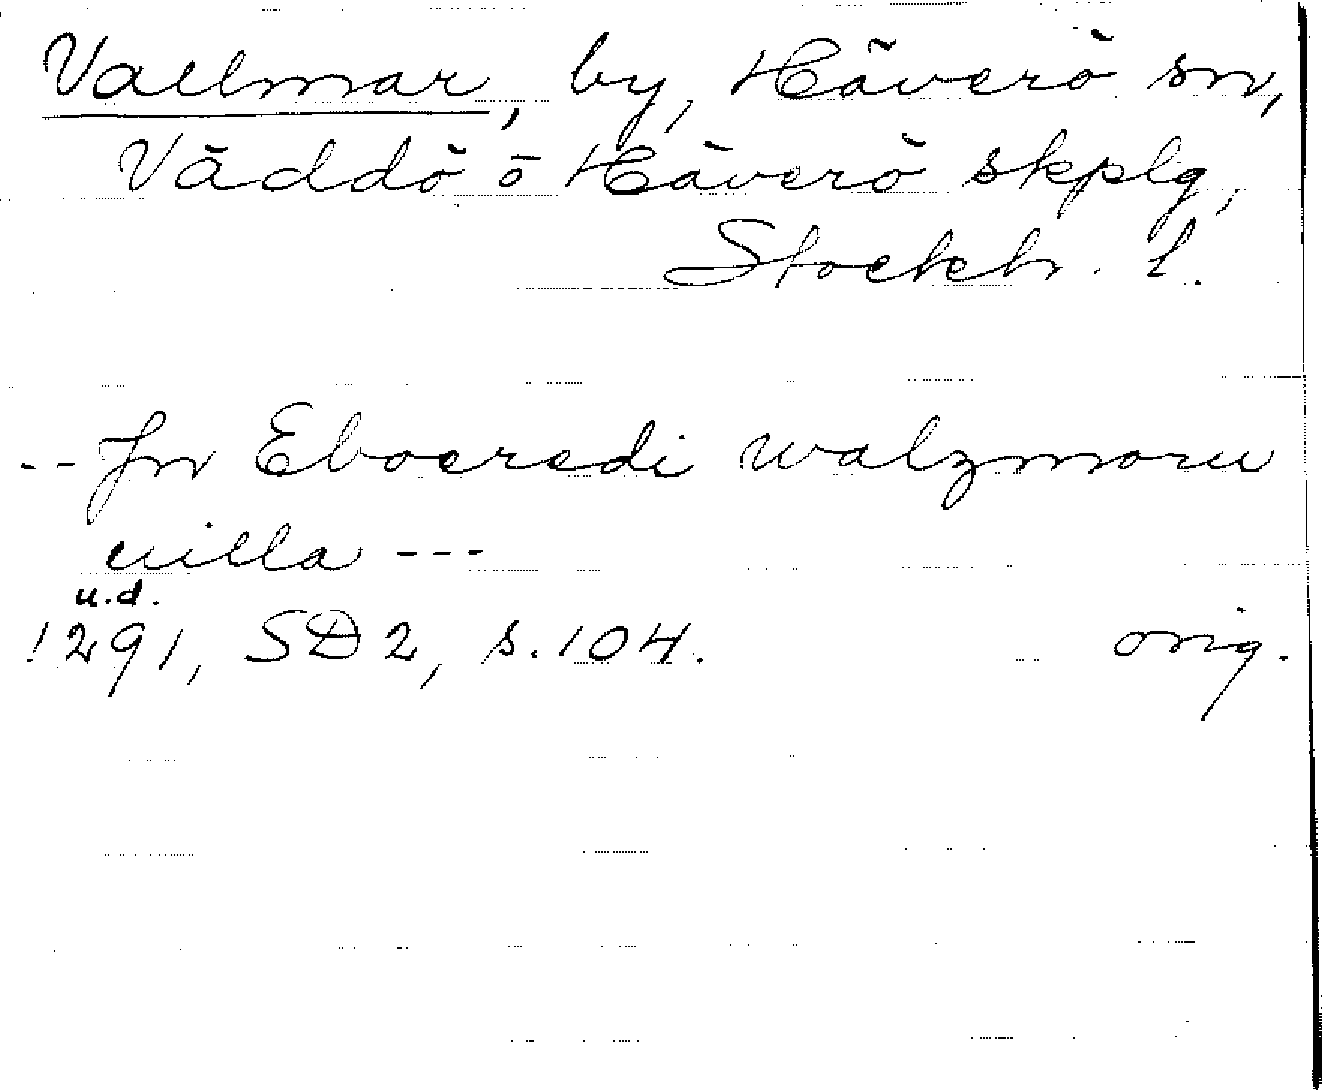 Vallmar, by, Häverö sn,
Väddö o Häverö skplg,
Stockh. l.
-- Jn Eboeredi walzmoru
uilla ---
u.d.
1291, SD2, s. 104. orig.